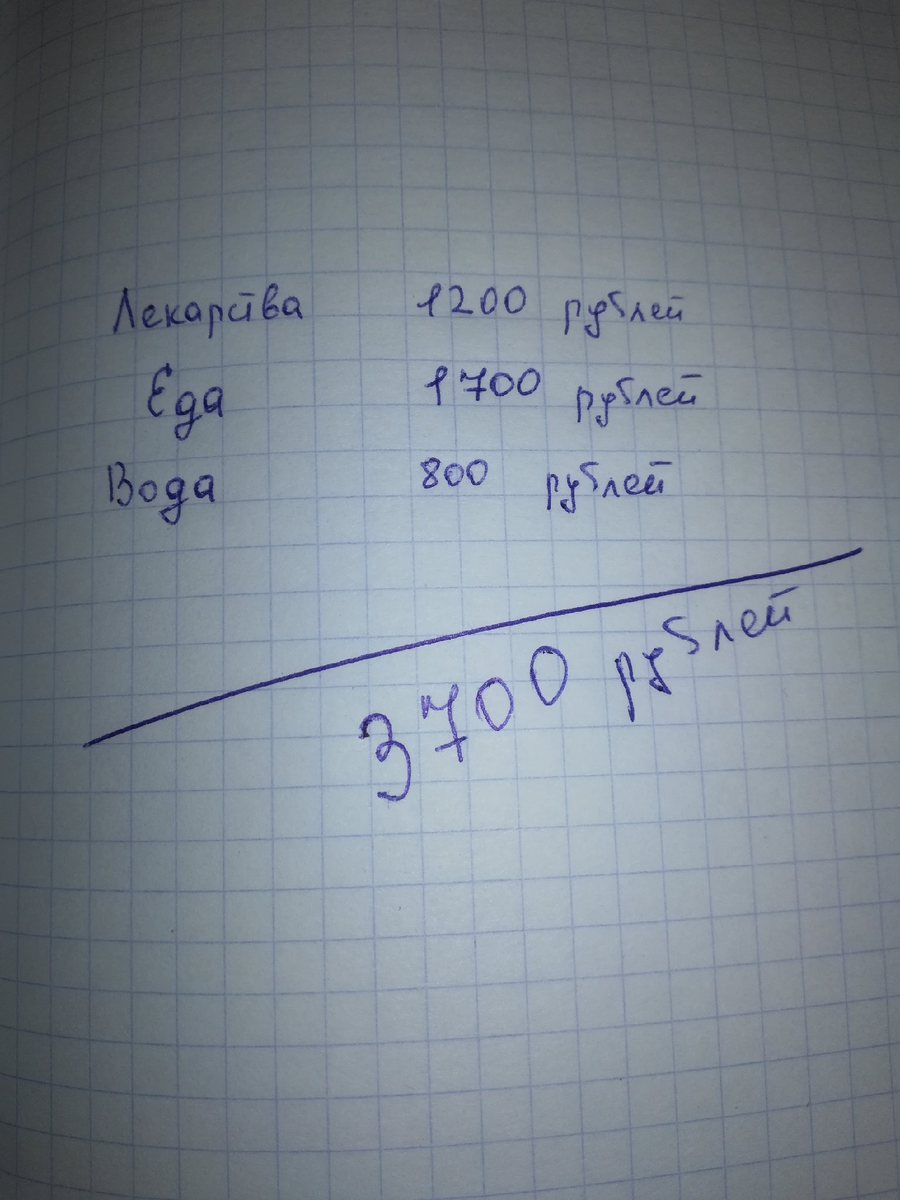 Лекарства 1200 рублей
Еда 1700 рублей
Вода 800 рублей
3700 рублей